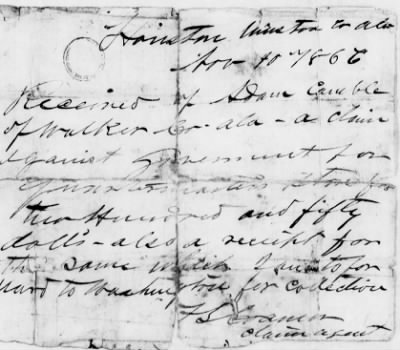 Houston Winston Co ala
Nov 10 1866
Received of Adam Camble
of Walker Co - ala - a claim
against Government for
Quartermasters store for
two Hundred and fifty
dolls - also a receipt for
the same which I am to for
ward to Washington for collection
claim agent